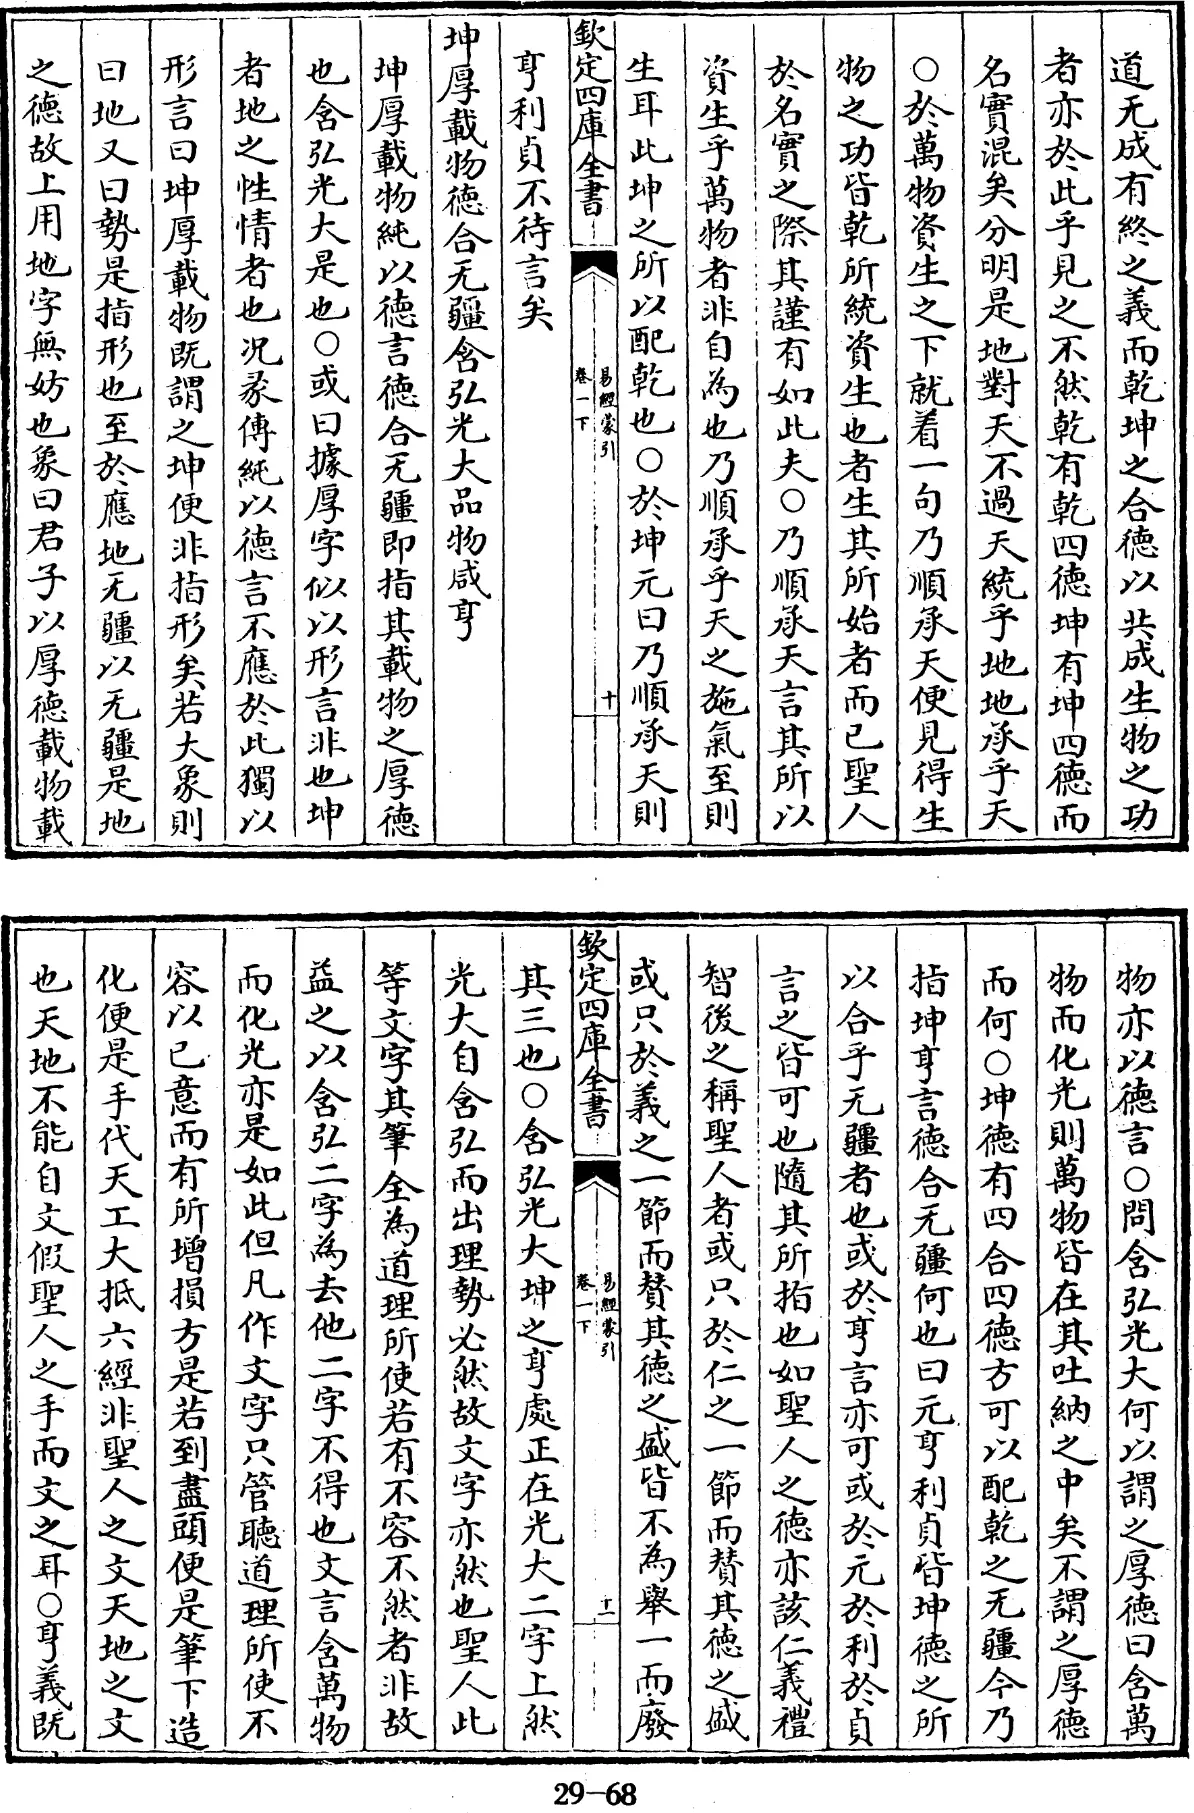 道无成有終之義而乾坤之合德以共成生物之功
者亦於此乎見之不然乾有乾四德坤有坤四德而
名實混矣分明是地對天不過天統乎地地承乎天
○於萬物資生之下就着一句乃順承天便見得生
物之功皆乾所統資生也者生其所始者而已聖人
於名實之際其謹有如此夫○乃順承天言其所以
資生乎萬物者非自為也乃順承乎天之施氣至則
生耳此坤之所以配乾也○於坤元曰乃順承天則
欽定四庫全書
易經蒙引
卷一下
十
亨利貞不待言矣
坤厚載物德合无疆含弘光大品物咸亨
坤厚載物純以德言德合无疆即指其載物之厚德
也含弘光大是也○或曰據厚字似以形言非也坤
者地之性情者也况彖傳純以德言不應於此獨以
形言曰坤厚載物既謂之坤便非指形矣若大象則
曰地又曰勢是指形也至於應地无疆以无疆是地
之德故上用地字無妨也象曰君子以厚德載物載
物亦以德言○問含弘光大何以謂之厚德曰含萬
物而化光則萬物皆在其吐納之中矣不謂之厚德
而何○坤德有四合四德方可以配乾之无疆今乃
指坤亨言德合无疆何也曰元亨利貞皆坤德之所
以合乎无疆者也或於亨言亦可或於元於利於貞
言之皆可也隨其所指也如聖人之德亦該仁義禮
智後之稱聖人者或只於仁之一節而贊其德之盛
或只於義之一節而贊其德之盛皆不為舉一而廢
欽定四庫全書
易經蒙引
卷一下
十一
其三也○含弘光大坤之亨處正在光大二字上然
光大自含弘而出理勢必然故文字亦然也聖人此
等文字其筆全為道理所使若有不容不然者非故
益之以含弘二字為去他二字不得也文言含萬物
而化光亦是如此但凡作文字只管聽道理所使不
容以己意而有所增損方是若到盡頭便是筆下造
化便是手代天工大抵六經非聖人之文天地之文
也天地不能自文假聖人之手而文之耳○亨義既
29-68